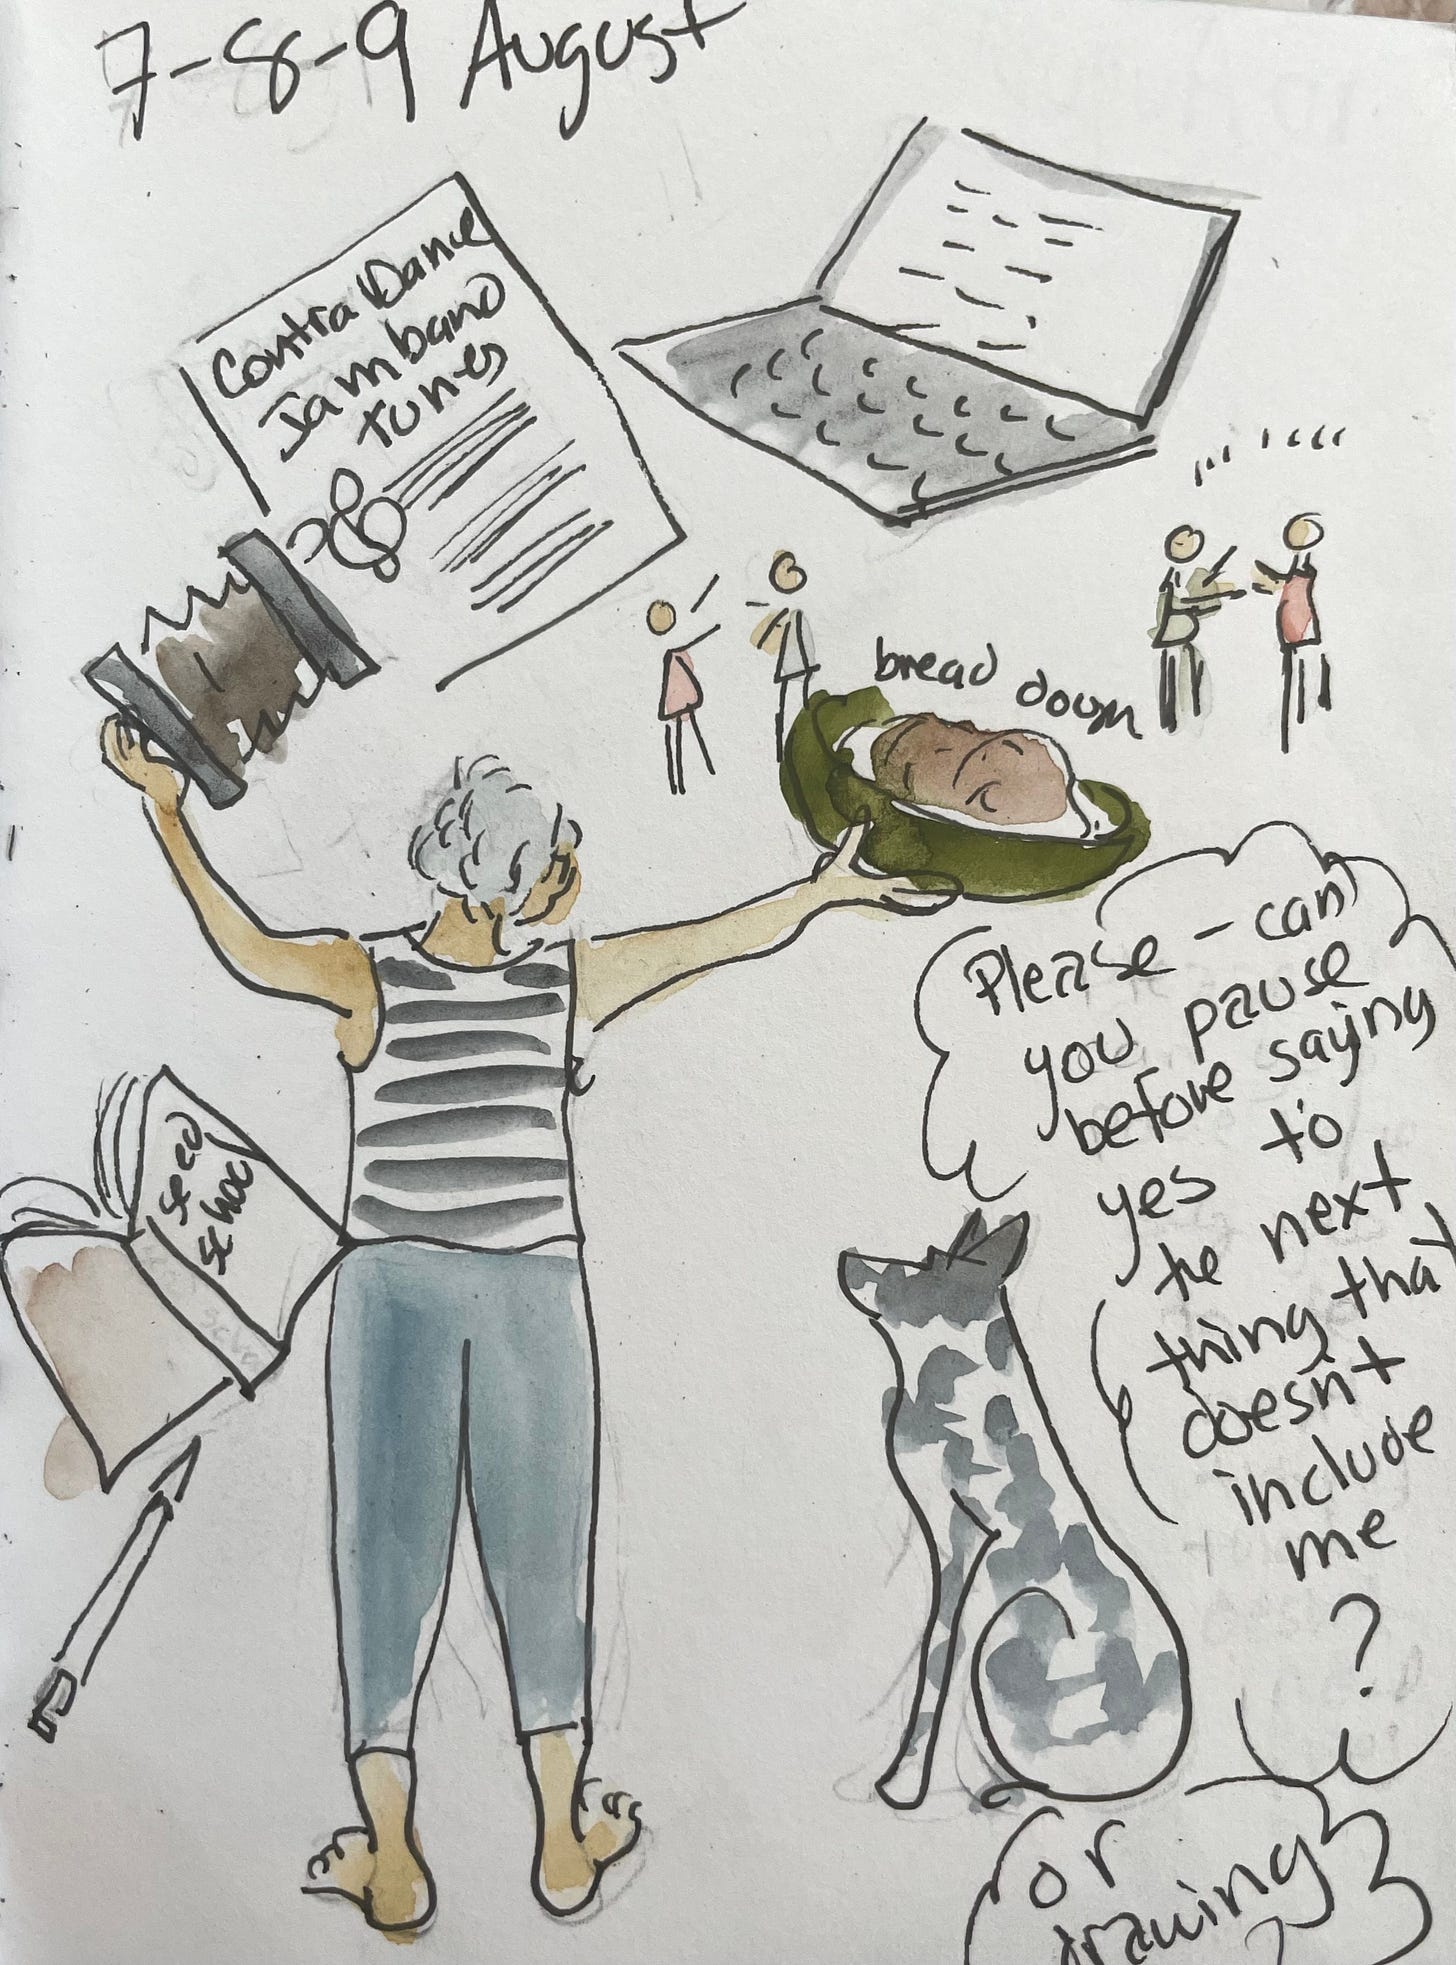 7-8-9 August
Contra Dance
Jam band
tunes
bread doum
seed
school
Please - can
you pause
before saying
yes to
the next
thing that
doesn't
include
me
?
or
drawing
?